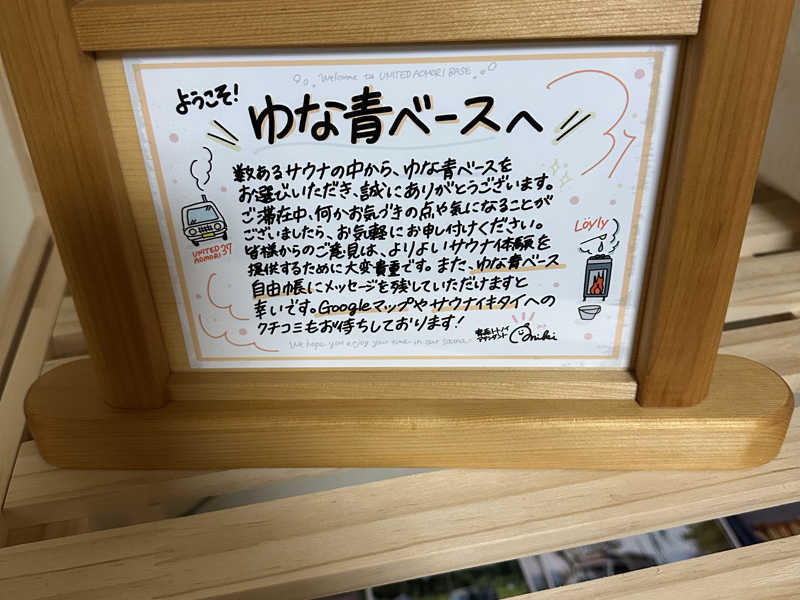 Welcome to UNITED AOMORI BASE
ようこそ!
ゆな青ベースへ
37
数あるサウナの中から、ゆな青ベースを
お選びいただき、誠にありがとうございます。
ご滞在中、何かお気づきの点や気になることが
ございましたら、お気軽にお申し付けください。
皆様からのご意見は、よりよいサウナ体験を
提供するために大変貴重です。また、ゆな青ベース
自由帳にメッセージを残していただけますと
幸いです。Googleマップやサウナイキタイへの
クチコミもお待ちしております!
UNITED
AOMORI 37
Löyly
We hope you enjoy your time in our sauna.